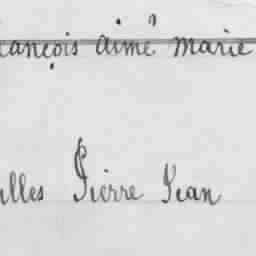 rançois aimé marie
illes Pierre Jean